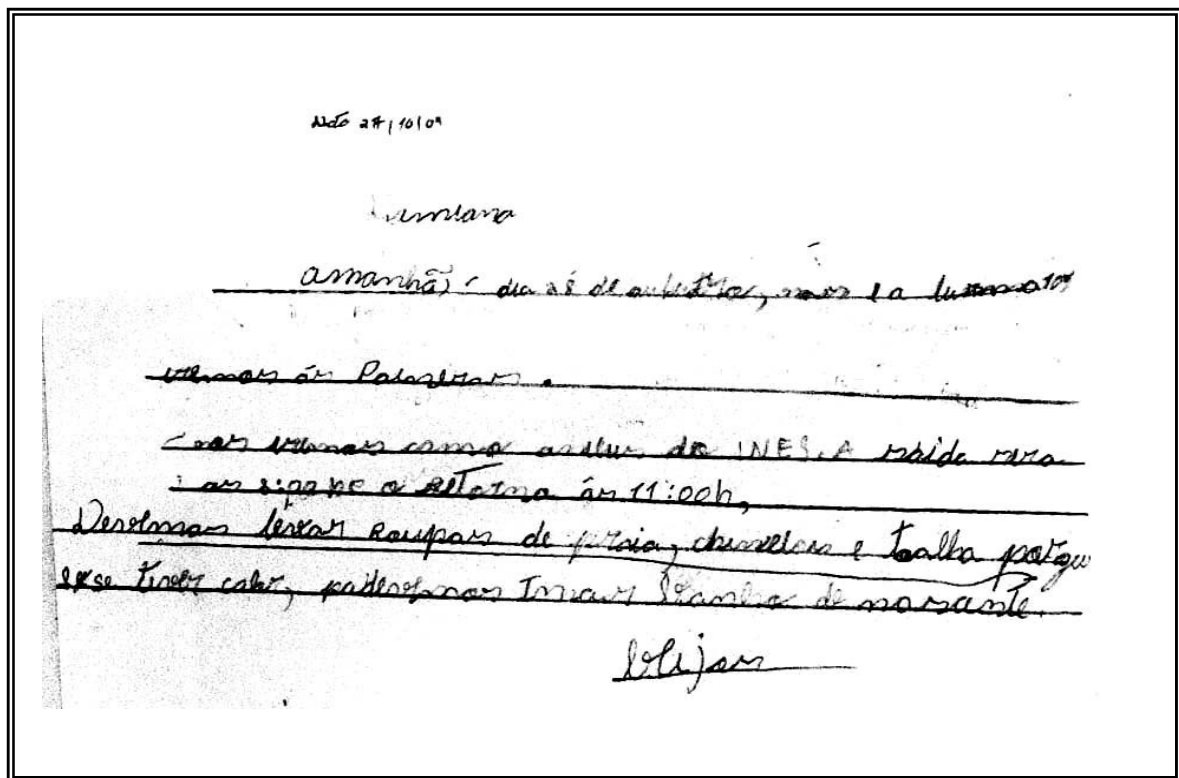 27/10/09
amanhã, dia 28 de outubro, nós e a turma 109
iremos às Paineiras.
nós iremos como ônibus do INES. A saída será
às 8:00 he o retorno às 11:00h,
Devemos levar roupas de praia, chinelos e toalha porque
se tiver calor, poderemos Tomar banho de nascente.
beijos